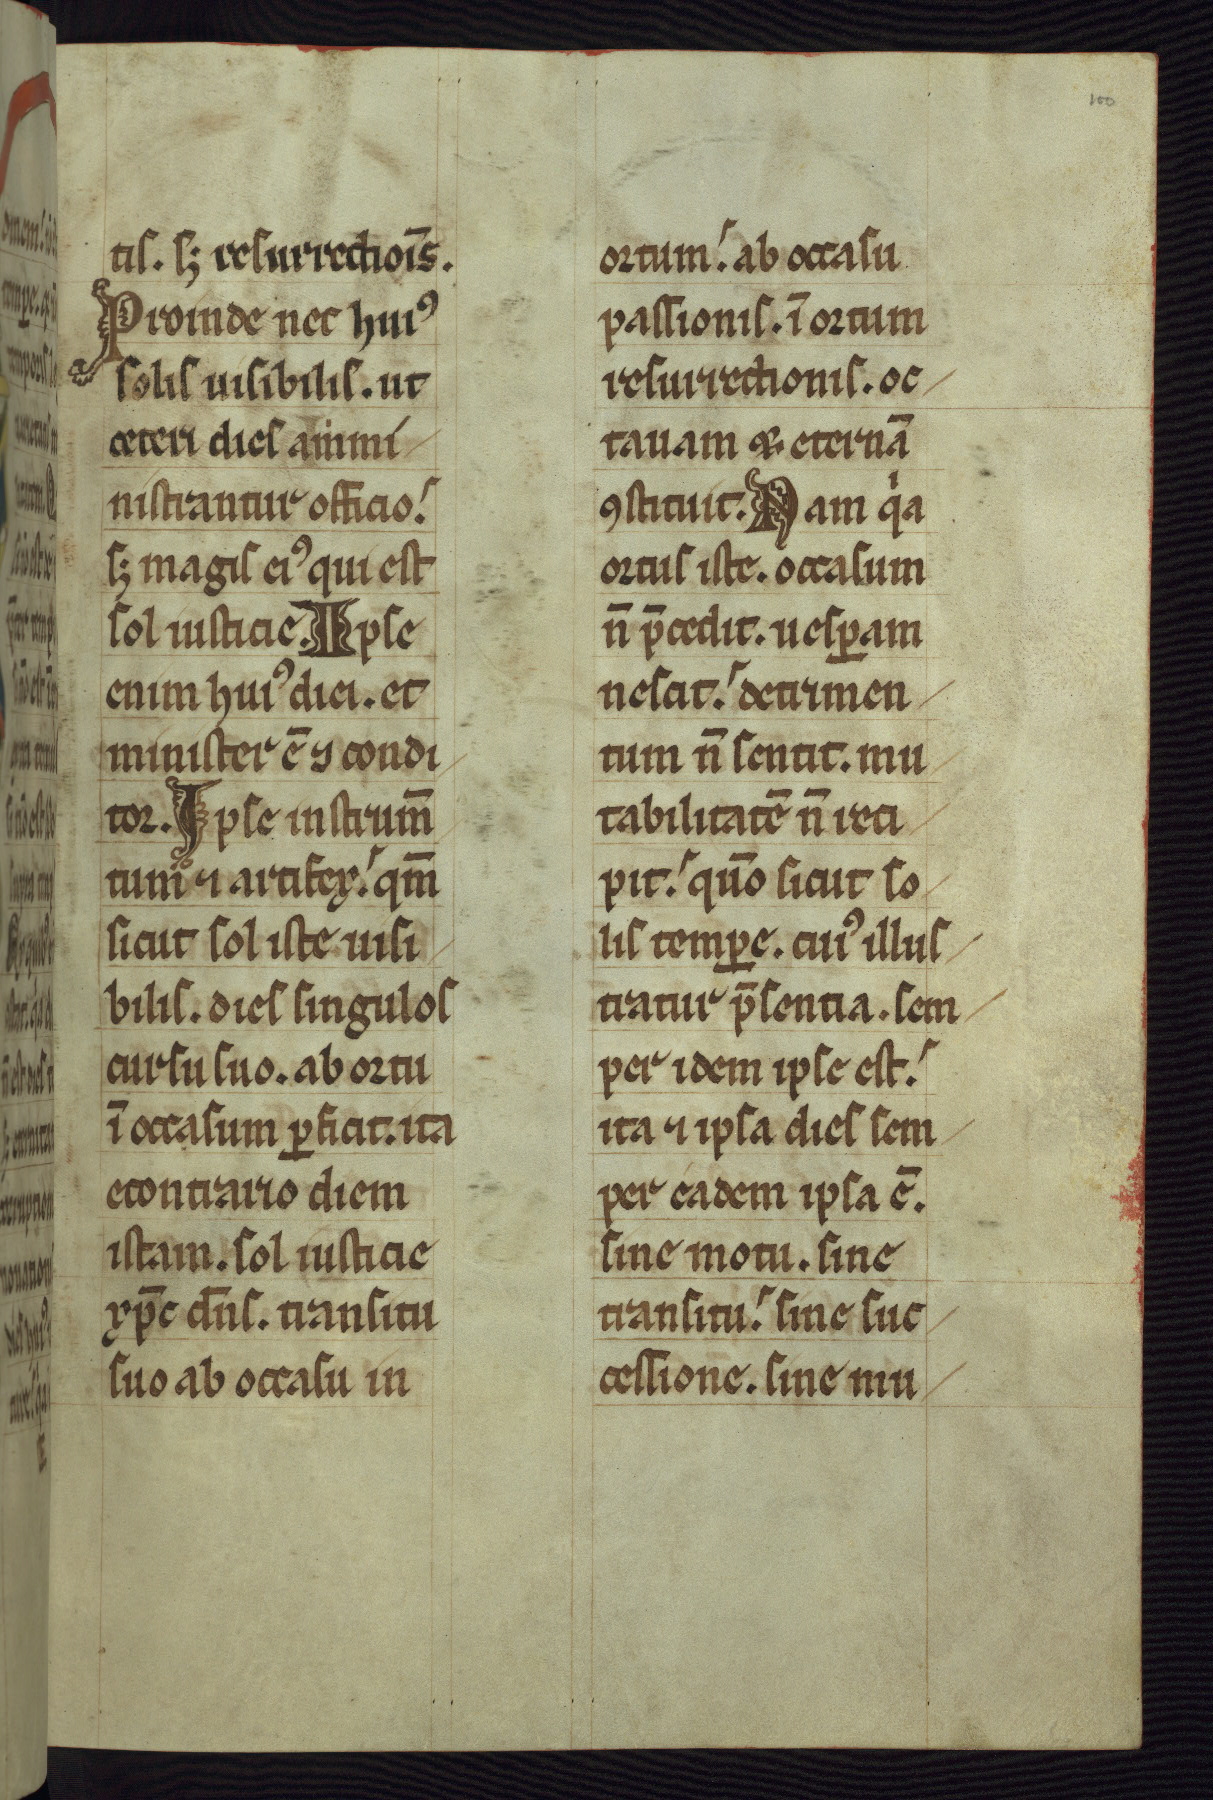 100
tis. sꝫ resurrectiōis.
Proinde nec huiꝰ
solis uisibilis. ut
ceteri dies ammi
nistrantur officio.
sꝫ magis eiꝰ qui est
sol iusticie. Ipse
enim huiꝰ diei. et
minister ē ⁊ condi
tor. Ipse instrum̄
tum ⁊ artifex. qm̄
sicut sol iste uisi
bilis. dies singulos
cursu suo. ab ortu
ī occasum ꝑficit. ita
econtrario diem
istam. sol iusticie
xp̄c dn̄s. transitu
suo ab occasu in
ortum. ab occasu
passionis. ī ortum
resurrectionis. oc
tauam eternā
ꝯstituit. Nam qͥa
ortus iste. occasum
n̄ p̄cedit. uesꝑam
nescit. detrimen
tum n̄ sentit. mu
tabilitatē n̄ reci
pit. quō sicut so
lis temꝑe. cuiꝰ illus
tratur p̄sentia. sem
per idem ipse est.
ita ⁊ ipsa dies sem
per eadem ipsa ē.
sine motu. sine
transitu. sine suc
cessione. sine mu